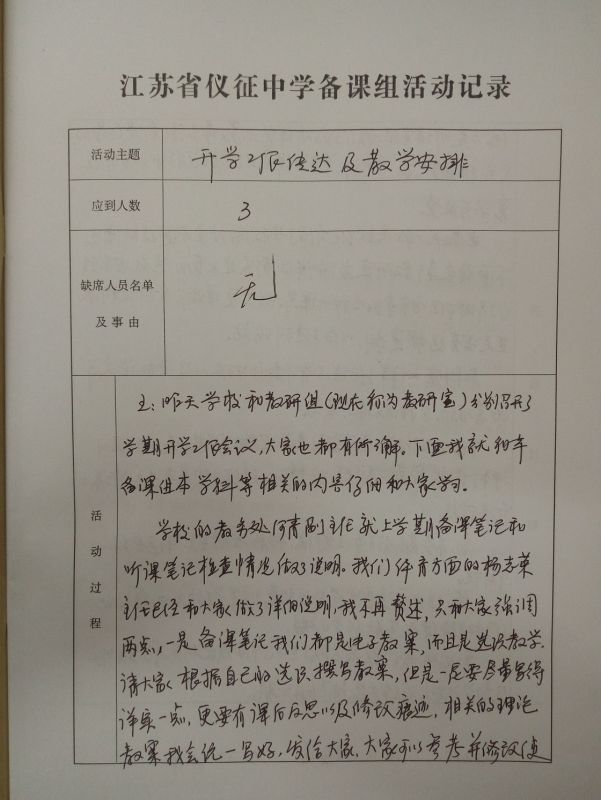 江苏省仪征中学备课组活动记录
活动主题
开学工作传达及教学安排
应到人数
3
缺席人员名单
及事由
无
活动过程
主：昨天学校和教研组（现在称为教研室）分别召开了
学期开学工作会议，大家也都有所了解。下面我就和本
备课组本学科等相关的内容仔细和大家学习。
学校的教务处何青副主任就上学期备课笔记和
听课笔记检查情况做了说明。我们体育方面的杨志英
主任已经和大家做了详细说明，我不再赘述，只和大家强调
两点，一是备课笔记我们都是电子教案，而且是选项教学，
请大家根据自己的选项撰写教案，但是一定要尽量写得
详实一点，更要有课后反思以及修改痕迹，相关的理论
教案我会统一写好，发给大家，大家可以参考并修改使